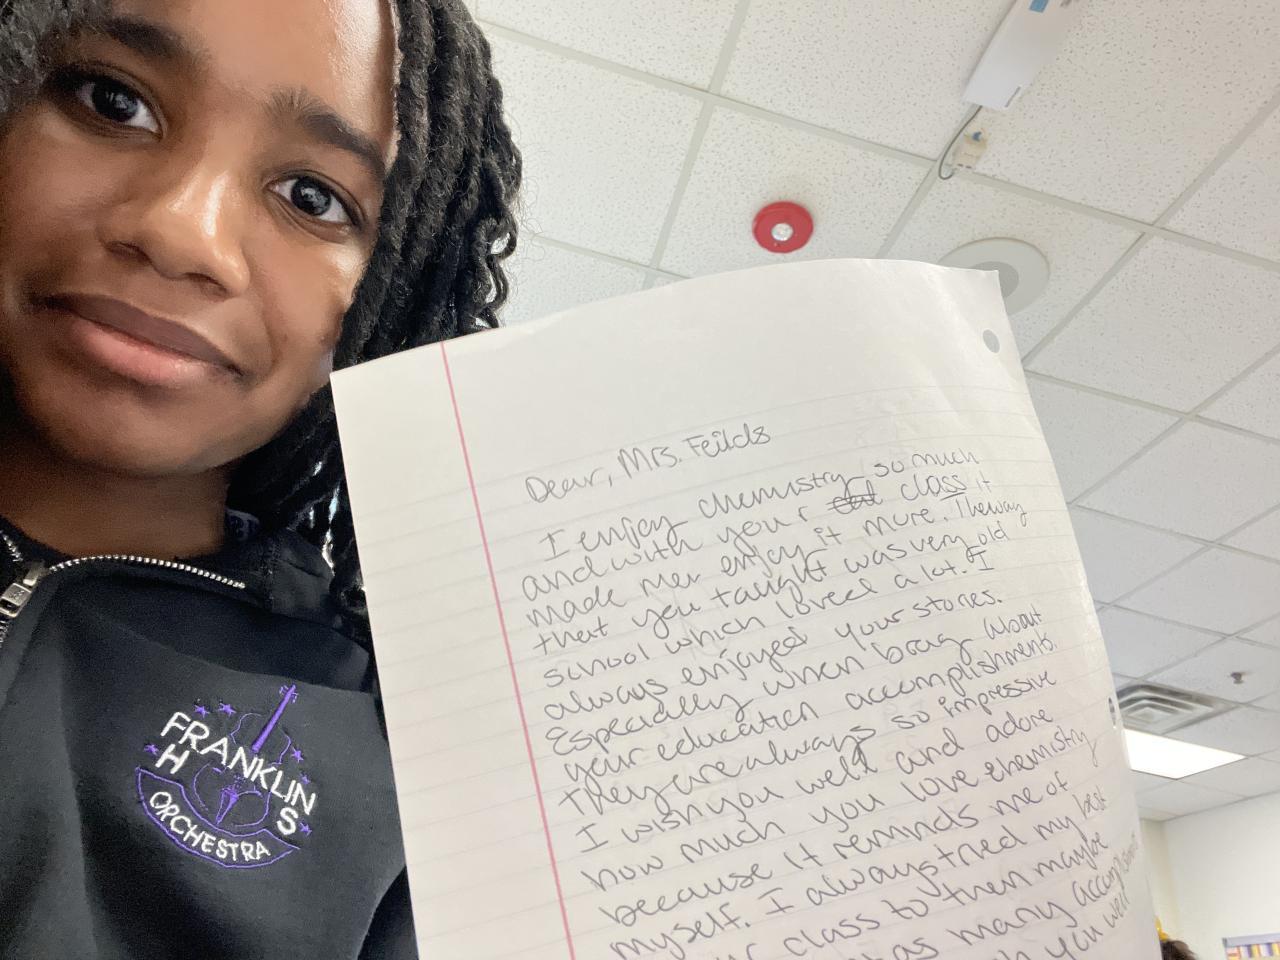 FRANKLIN
H S
ORCHESTRA
Dear, Mrs. Feilds
I enjoy chemistry so much
and with your class it
made mer enjoy it more. The way
that you taught was very old
school which loved a lot. I
always enjoyed your stories.
Especially when brag about
your education accomplishments.
They are always so impressive
I wish you well and adore
how much you love chemistry
because it reminds me of
myself. I always tried my best
class to then maybe
as many
you well